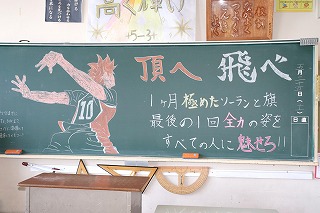 高く輝け
+5-3+
頂へ 飛べ
10
1ヶ月極めたソーランと旗
最後の1回全力の姿を
すべての人に魅せろ!!
日直